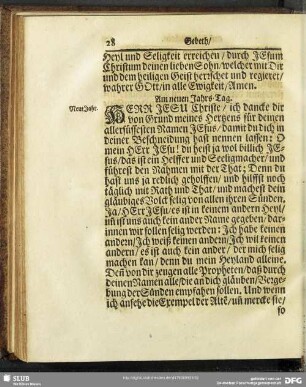 28 Gebeth/
Heyl und Seligkeit erreichen/ durch JEsum
Christum deinen lieben Sohn/ welcher mit Dir
und dem heiligen Geist herrschet und regieret/
wahrer GOtt/ in alle Ewigkeit/ Amen.
Am neuen Jahrs-Tag.
HERR JESU Christe/ ich dancke dir
von Grund meines Hertzens für deinen
allersüssesten Namen JEsus/ damit du dich in
deiner Beschneidung hast nennen lassen: O
mein HErr JEsu! du heist ja wol billich JE-
sus/ das ist ein Helffer und Seeligmacher/ und
führest den Nahmen mit der That: Denn du
hast uns ja redlich geholffen/ und hilffst noch
täglich mit Rath und That/ und machest dein
gläubiges Volck selig von allen ihren Sünden.
Ja/ HErr JEsu/ es ist in keinem andern Heyl/
es ist uns auch kein ander Name gegeben/ dar-
innen wir sollen selig werden: Ich habe keinen
andern/ Ich weiß keinen andern/ Ich wil keinen
andern/ es ist auch kein ander/ der mich selig
machen kan/ denn du mein Heyland alleine.
Deñ von dir zeugen alle Propheten/ daß durch
deinen Namen alle/ die an dich gläuben/ Verge-
bung der Sünden empfahen sollen. Und wenn
ich ansehe die Exempel der Altẽ/ uñ mercke sie/
so
Neue Jahr.
SLUB
DFG